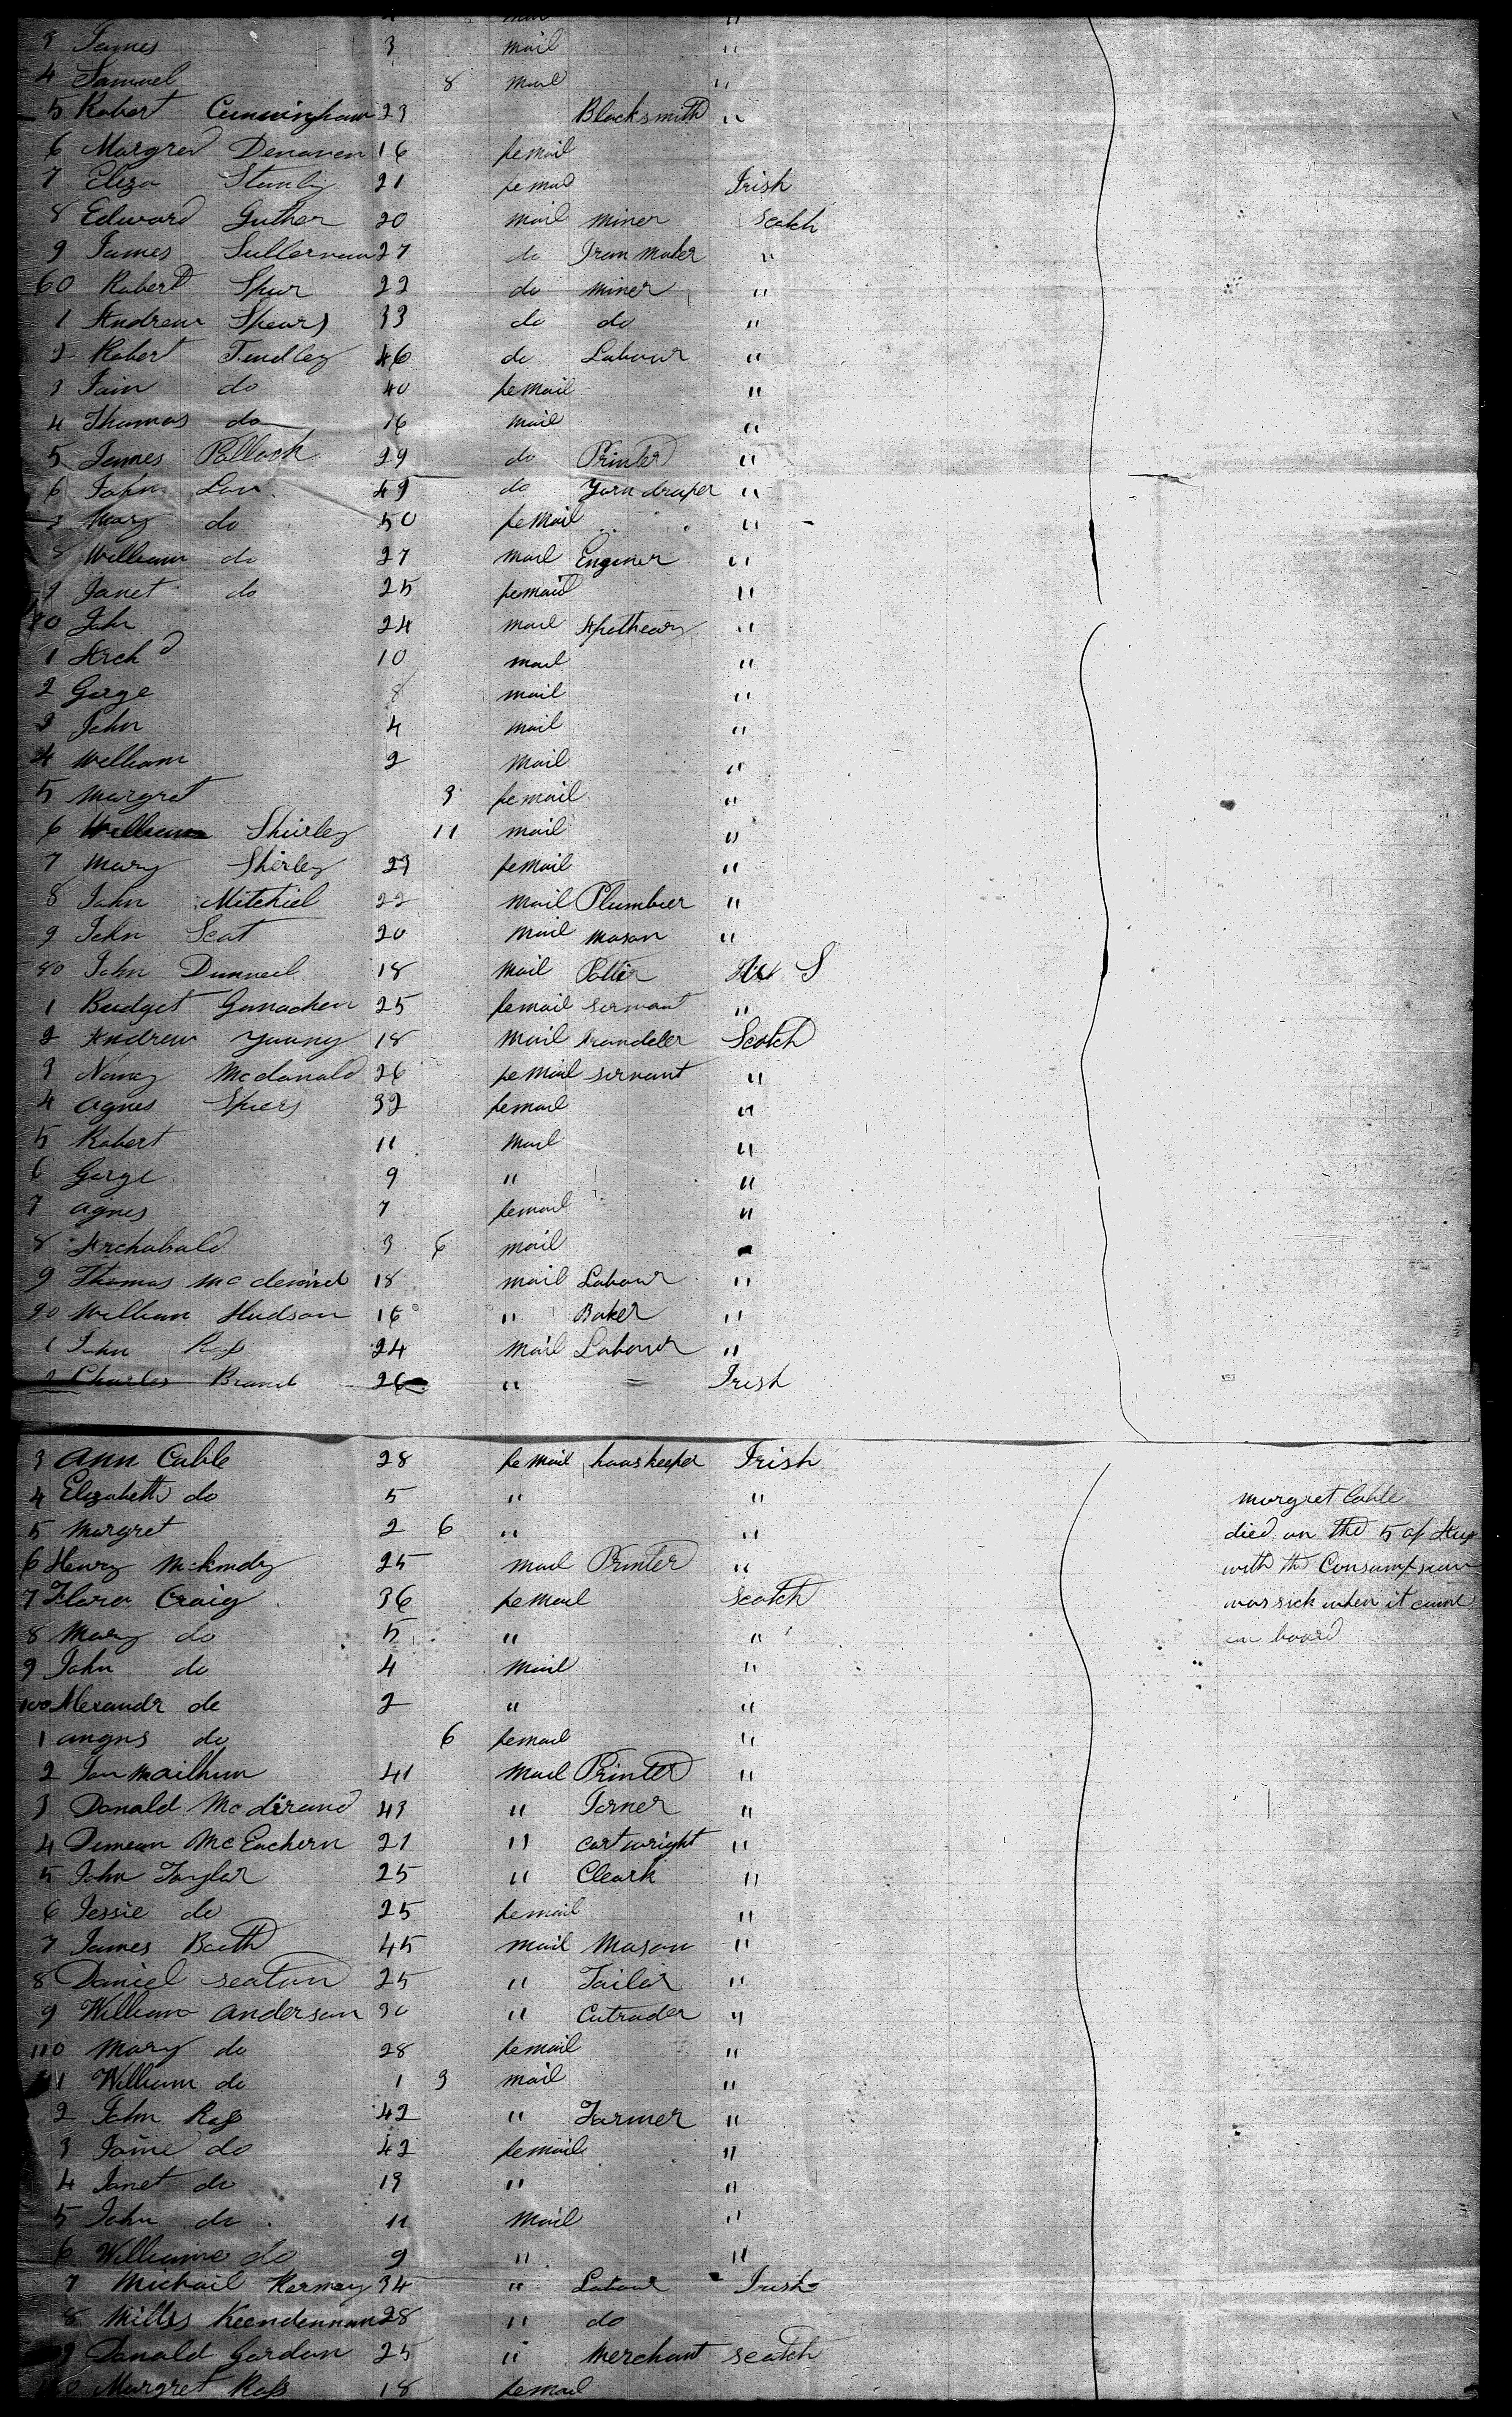 3 James 3 mail "
4 Samuel 8 mail "
5 Robert Cunningham 23 Blacksmith "
6 Margred Denaven 16 femail
7 Eliza Stanly 21 femail Irish
8 Edward Guther 20 mail miner Scotch
9 James 27 do Iron Maker "
60 Robert Spur 22 do miner "
1 Andrew Spears 33 do do "
2 Robert Findley 46 do Labour "
3 Jain do 40 femail "
4 Thomas do 16 mail "
5 James Pollock 29 do Printer "
6 John Law 49 do Yarn draper "
Mary do 50 femail "
8 William do 27 mail Enginer "
9 Janet do 25 femail "
70 John 24 mail Apothecary "
1 Archd 10 mail "
2 Gorge 8 mail "
3 John 4 mail "
4 William 2 mail "
5 Margret 3 femail "
6 William Shirley 11 mail "
7 Mary Shirley 23 femail "
8 John Mitchiel 22 mail Plumber "
9 John Scot 20 mail mason "
80 John 18 mail Potter S
1 Bridget 25 femail servant "
2 Andrew Young 18 mail Scotch
3 Nancy Mcdonald 26 femail servant "
4 Agnes Spiers 32 femail "
5 Robert 11 mail "
6 Gorge 9 " "
7 Agnes 7 femail "
8 Archabald 3 6 mail "
9 Thomas 18 mail Labour "
90 William Hudson 16 " Baker "
1 John Ross 24 mail Labour "
2 Charles Brand 26 " Irish
3 Ann Cable 28 femail houskeeper Irish
4 Elizabeth do 5 " " Margret Cable
5 Margret 2 6 " " died on the 5 of Aug
6 Henry 25 mail Printer " with the Consumpsion
7 Flora Craig 36 femail Scotch was sick when it came
8 Mary do 5 " " on board
9 John do 4 mail "
100 Alexandr do 2 " "
1 angns do 6 femail "
2 41 mail Printer "
3 Donald 43 " "
4 McEachern 21 " cartwright "
5 John Taylor 25 " Cleark "
6 Jessie do 25 femail "
7 James Booth 45 mail Mason "
8 Daniel seaton 25 " Tailor "
9 William Anderson 30 " "
110 Mary do 28 femail "
11 William do 1 3 mail "
2 John Ross 42 " Farmer "
3 Jaine do 42 femail "
4 Janet do 19 " "
5 John do 11 mail "
6 Williame do 9 " "
7 Michail 34 " Labour Irish
8 28 " do
9 Donald Gordon 25 " Merchant scotch
120 Margret Ross 18 femail